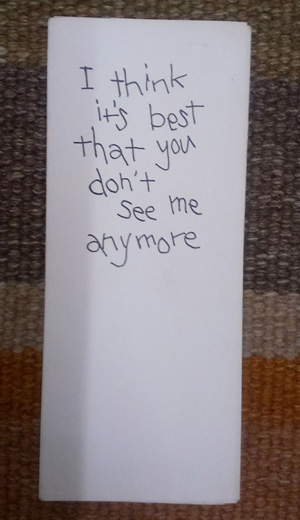 I think
it's best
that you
don't
see me
anymore